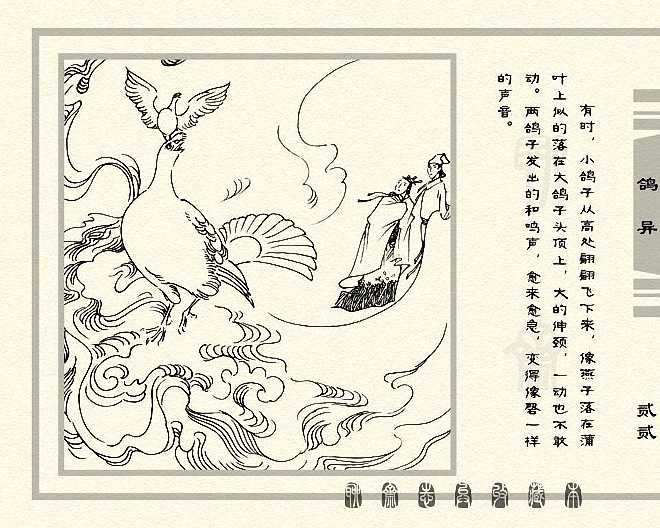 鸽异
贰贰
有时，小鸽子从高处翩翩飞下来，像燕子落在蒲
叶上似的落在大鸽子头顶上，大的伸颈，一动也不敢
动。两鸽子发出的和鸣声，愈来愈急，变得像磬一样
的声音。
聊斋志异收藏本